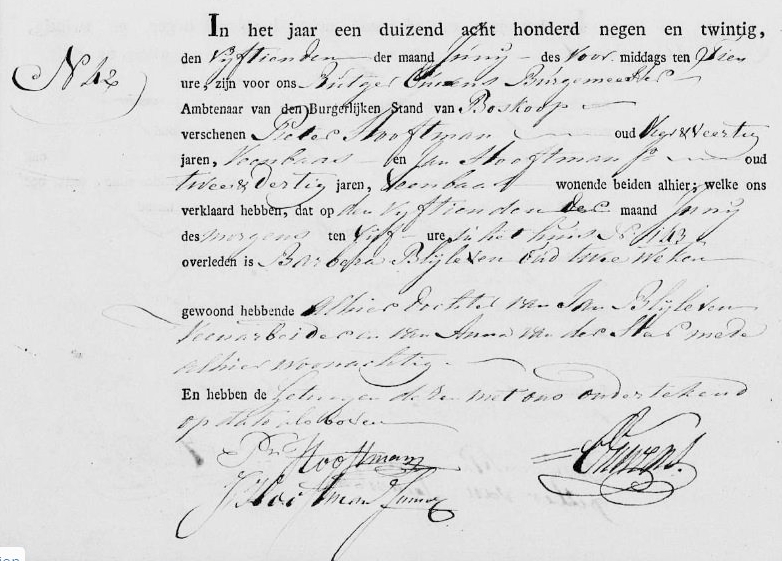 In het jaar een duizend acht honderd negen en twintig,
N 42
den Vyftienden der maand Juny des Voor middags ten Tien
ure, zijn voor ons Rutger Burgemeester
Ambtenaar van den Burgerlijken Stand van Boskoop
verschenen Pieter Hooftman oud
jaren, Veenbaas en Jan Hooftman Jr oud
twee & dertig jaren, Veenbaas wonende beiden alhier; welke ons
verklaard hebben, dat op den Vyftienden der maand Juny
des morgens ten Vijf ure in het huis No 143
overleden is Barbera Blyleven Oud twee weken
gewoond hebbende alhier dochter van Jan Blyleven
Veenarbeider en van Anna van der Ster mede
alhier woonachtig
En hebben de Getuigen dezen met ons ondertekend
op dato als boven
Pr Hooftman
J Hooftman Junior